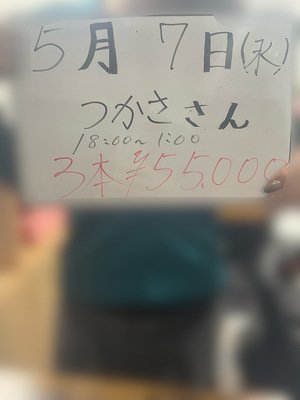 5月 7日(水)
つかささん
18:00~1:00
3本 ¥55,000